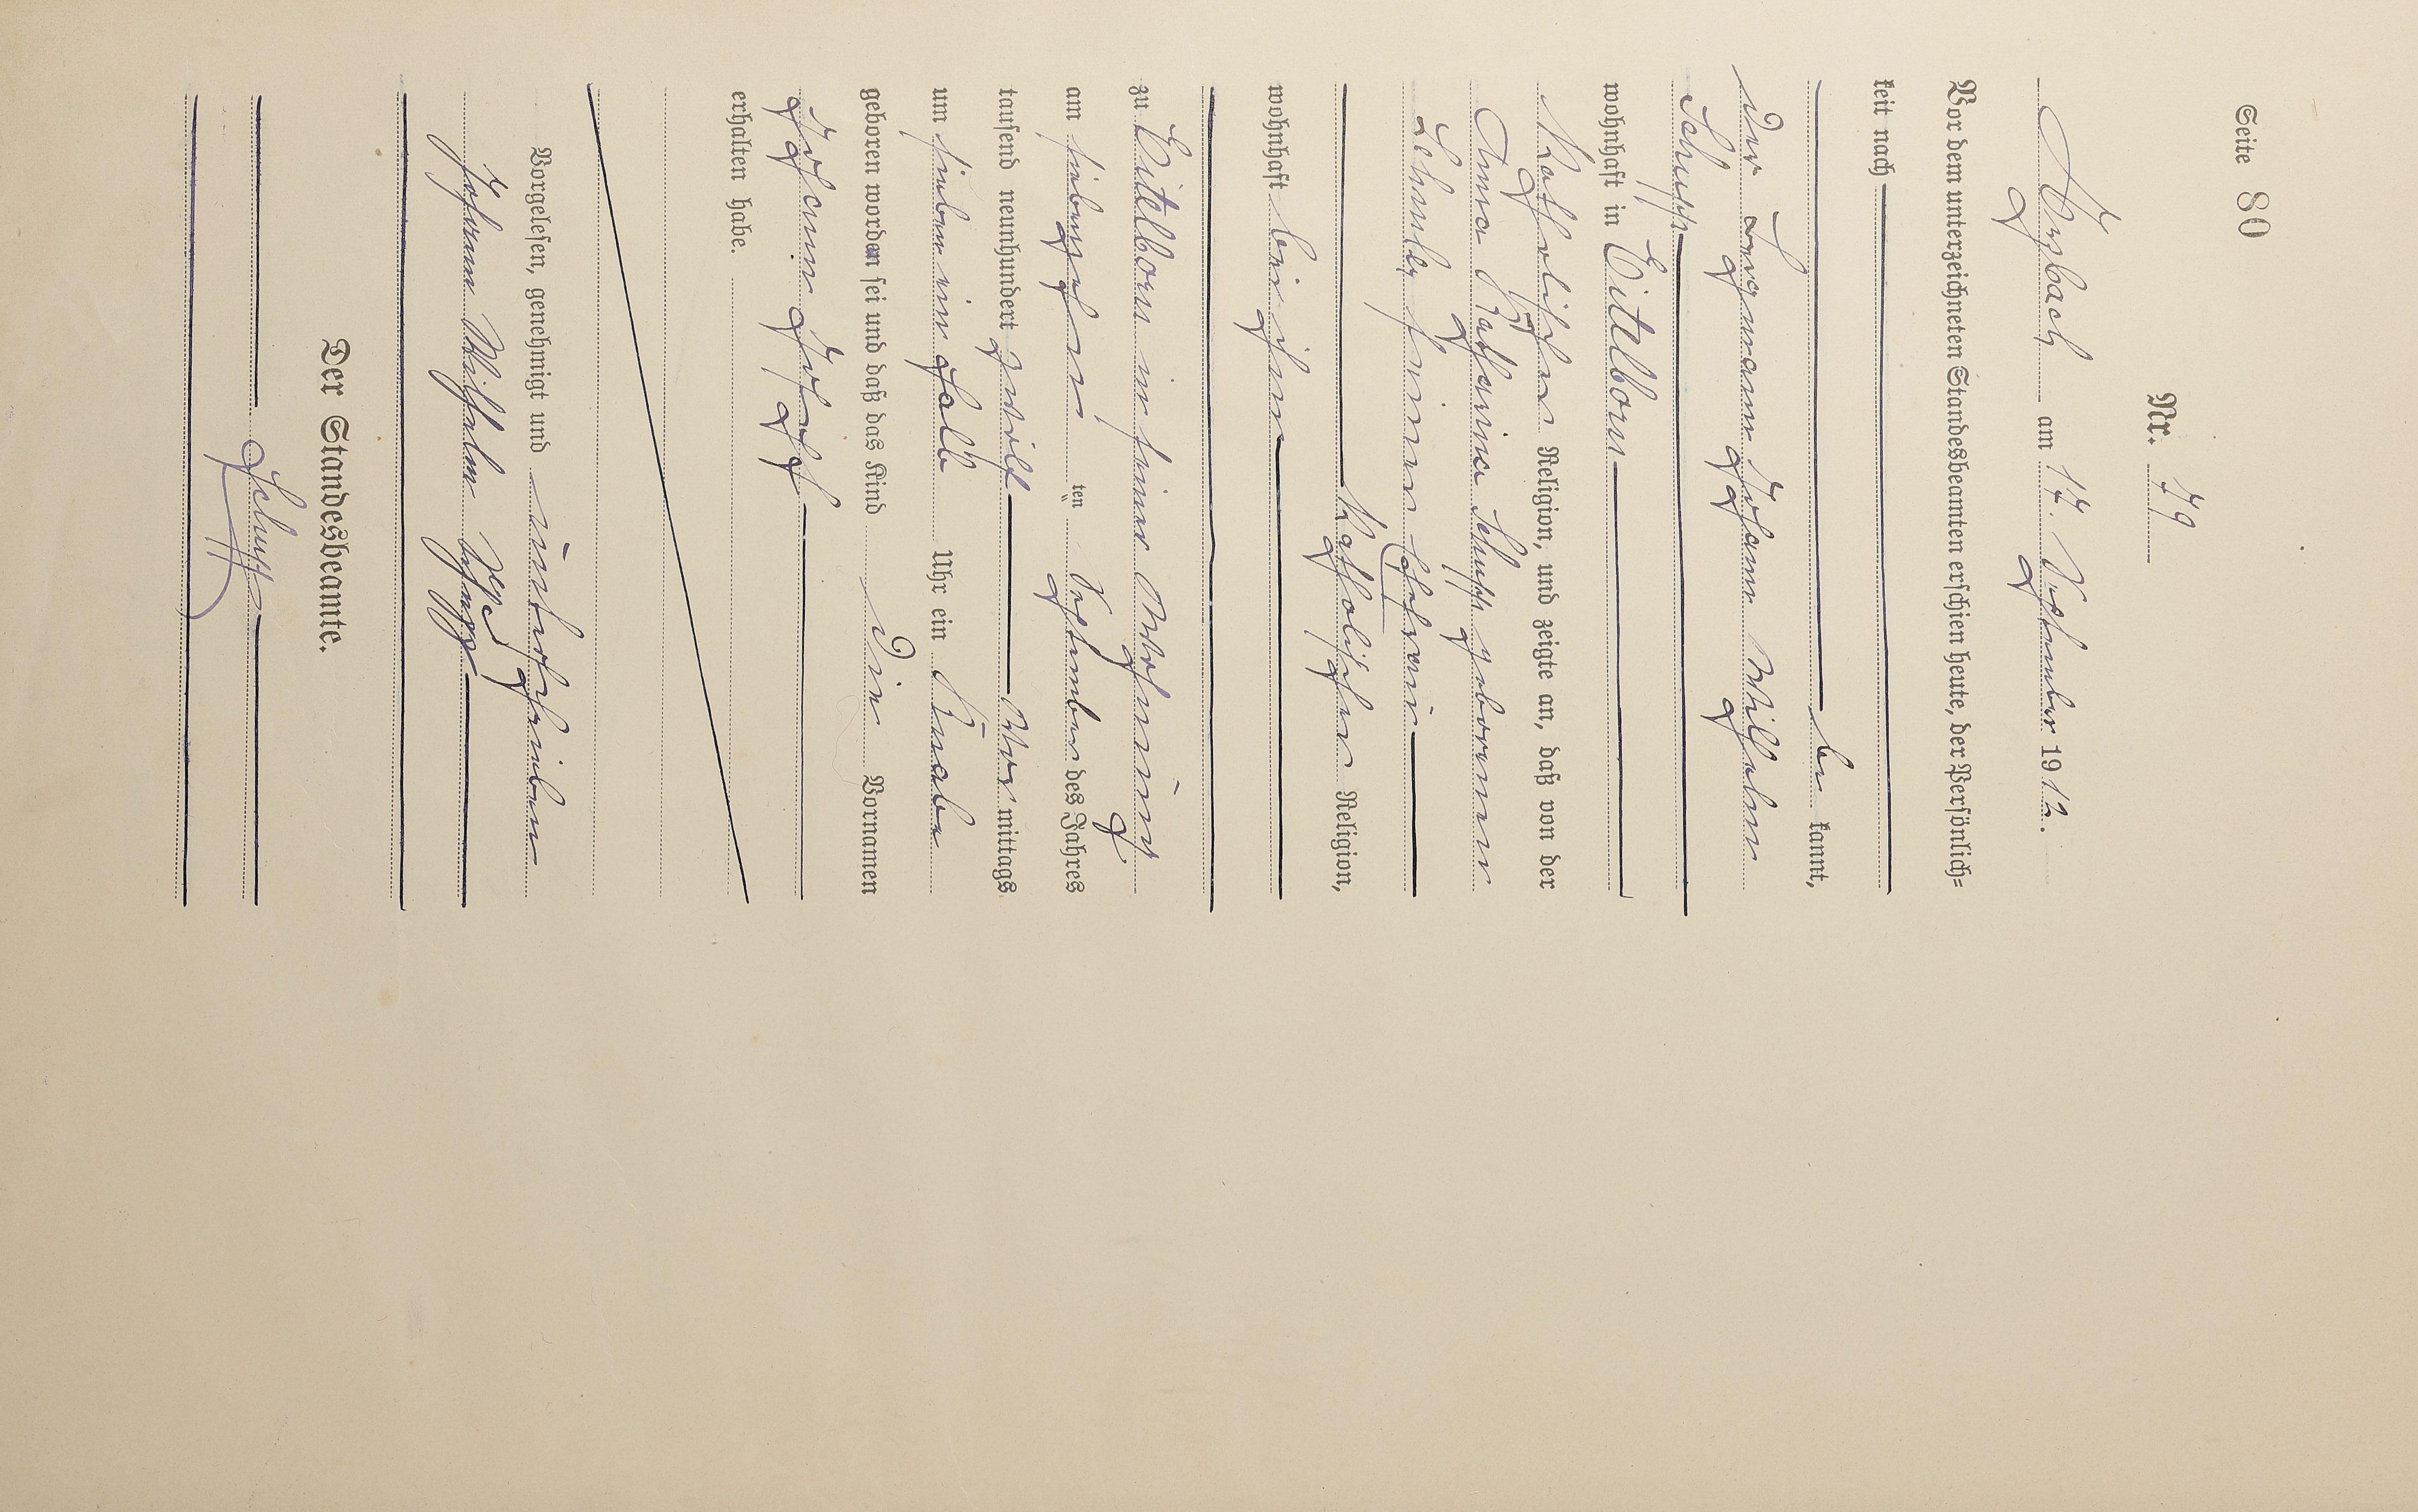 Seite 80
Nr. 79
Arzbach am 17. September 1912.
Vor dem unterzeichneten Standesbeamten erschien heute, der Persönlich=
keit nach
be kannt,
der Bergmann Johann Wilhelm
Schupp
wohnhaft in Eitelborn
Katholischer Religion, und zeigte an, daß von der
Anna Katharina Schupp geborenen
seiner Ehefrau
Katholischer Religion,
wohnhaft bei ihm
zu Eitelborn in seiner Wohnung
am siebzehn ten September des Jahres
tausend neunhundert zwölf Vor mittags
um sieben ein halb Uhr ein Knabe
geboren worden sei und daß das Kind die Vornamen
Johann Joseph
erhalten habe.
Vorgelesen, genehmigt und unterschrieben
Johann Wilhelm Schupp
Der Standesbeamte.